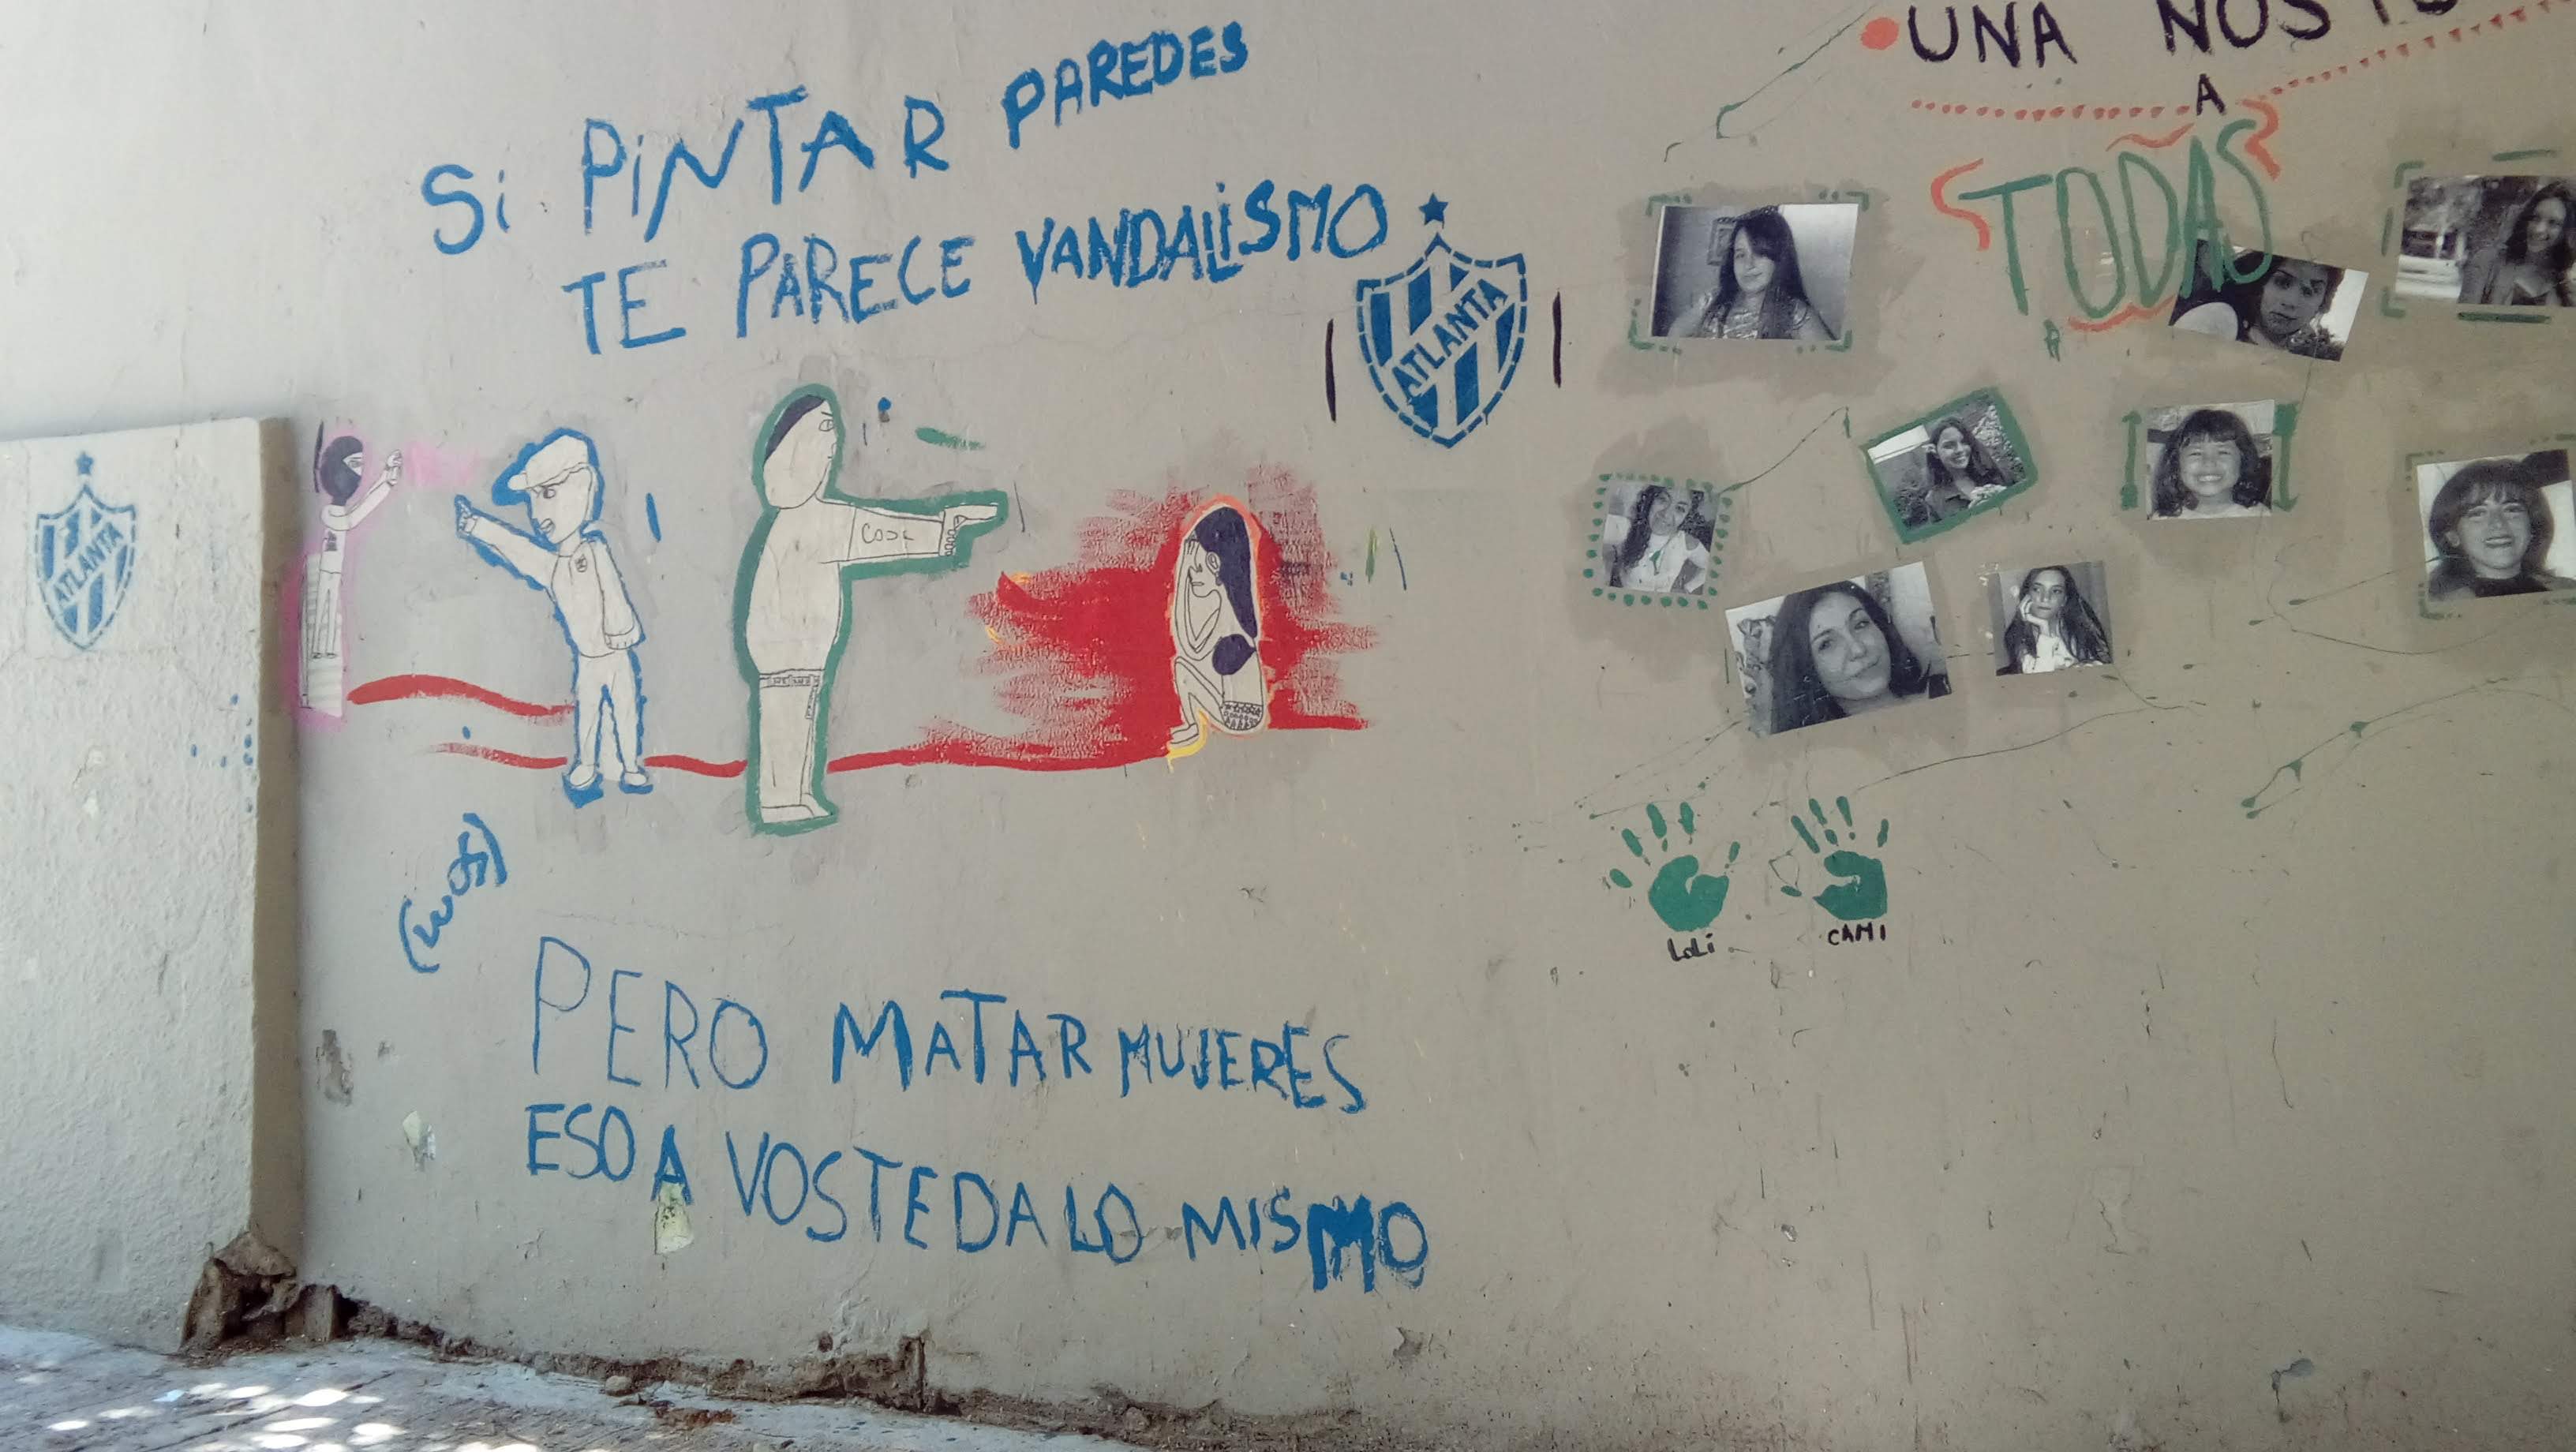 Si PiNTAR PAREDES
TE PARECE VANDALiSMO
ATLANTA
ATLANTA
PERO MATAR MUJERES
ESO A VOS TE DA LO MISMO
UNA NOS
A
TODAS
LOLi
CAMI